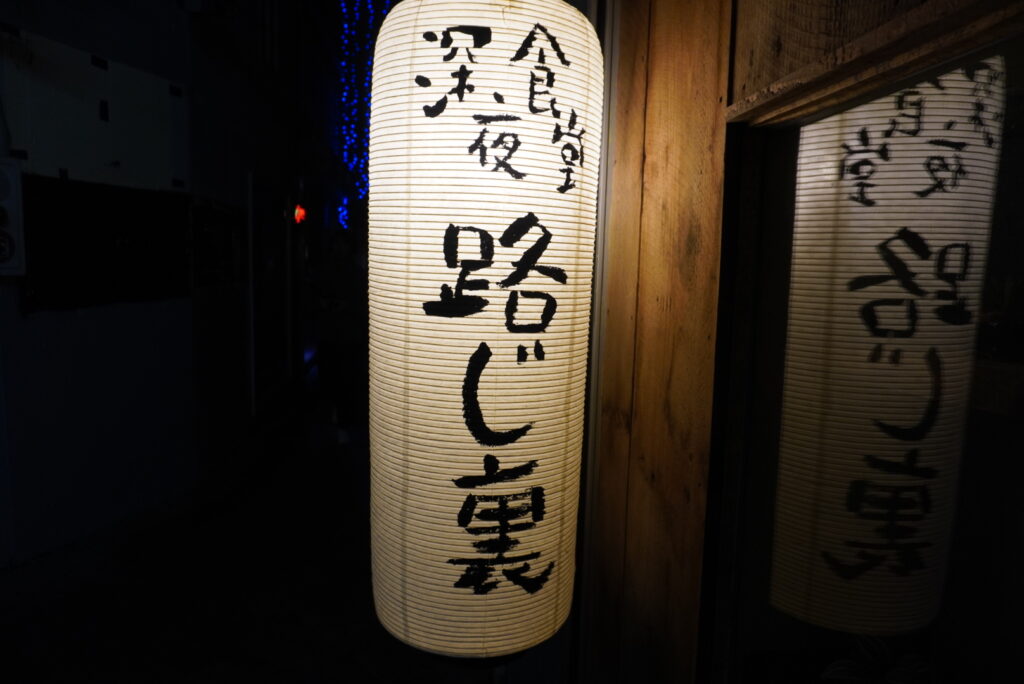 深夜
食堂
路じ裏